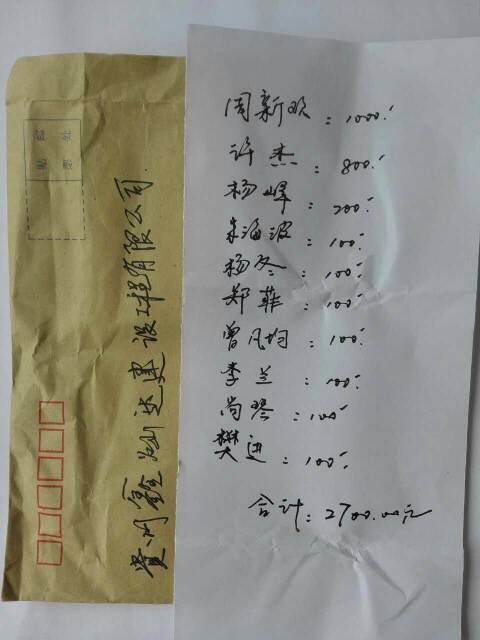 贴邮
票处
贵州鑫灿达建设工程有限公司
周新欢：1000.-
许杰：800.-
杨峰：200.-
朱海波：100.-
杨冬：100.-
郑菲：100.-
曾凡均：100.-
李兰：100.-
尚琴：100.-
樊进：100.-
合计：2700.00元